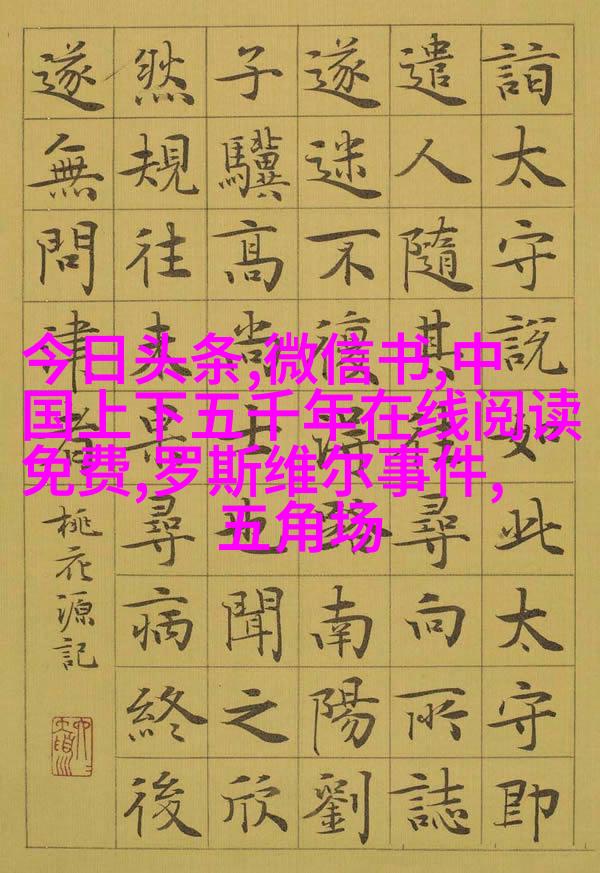 詣太守說如此太守即
遣人隨其往尋向所誌
遂迷不復得路南陽劉
子驥高尚士也聞之欣
然規往未果尋病終後
遂無問津者
桃花源記
今日头条,微信书,中
国上下五千年在线阅读
免费,罗斯维尔事件,
五角场